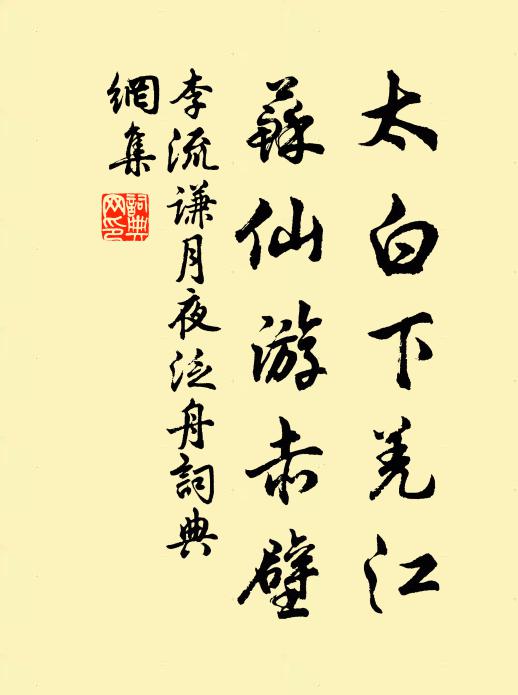 太白下羌江
蘇仙游赤壁
李流谦月夜泛舟詞典
網集
詞典网印